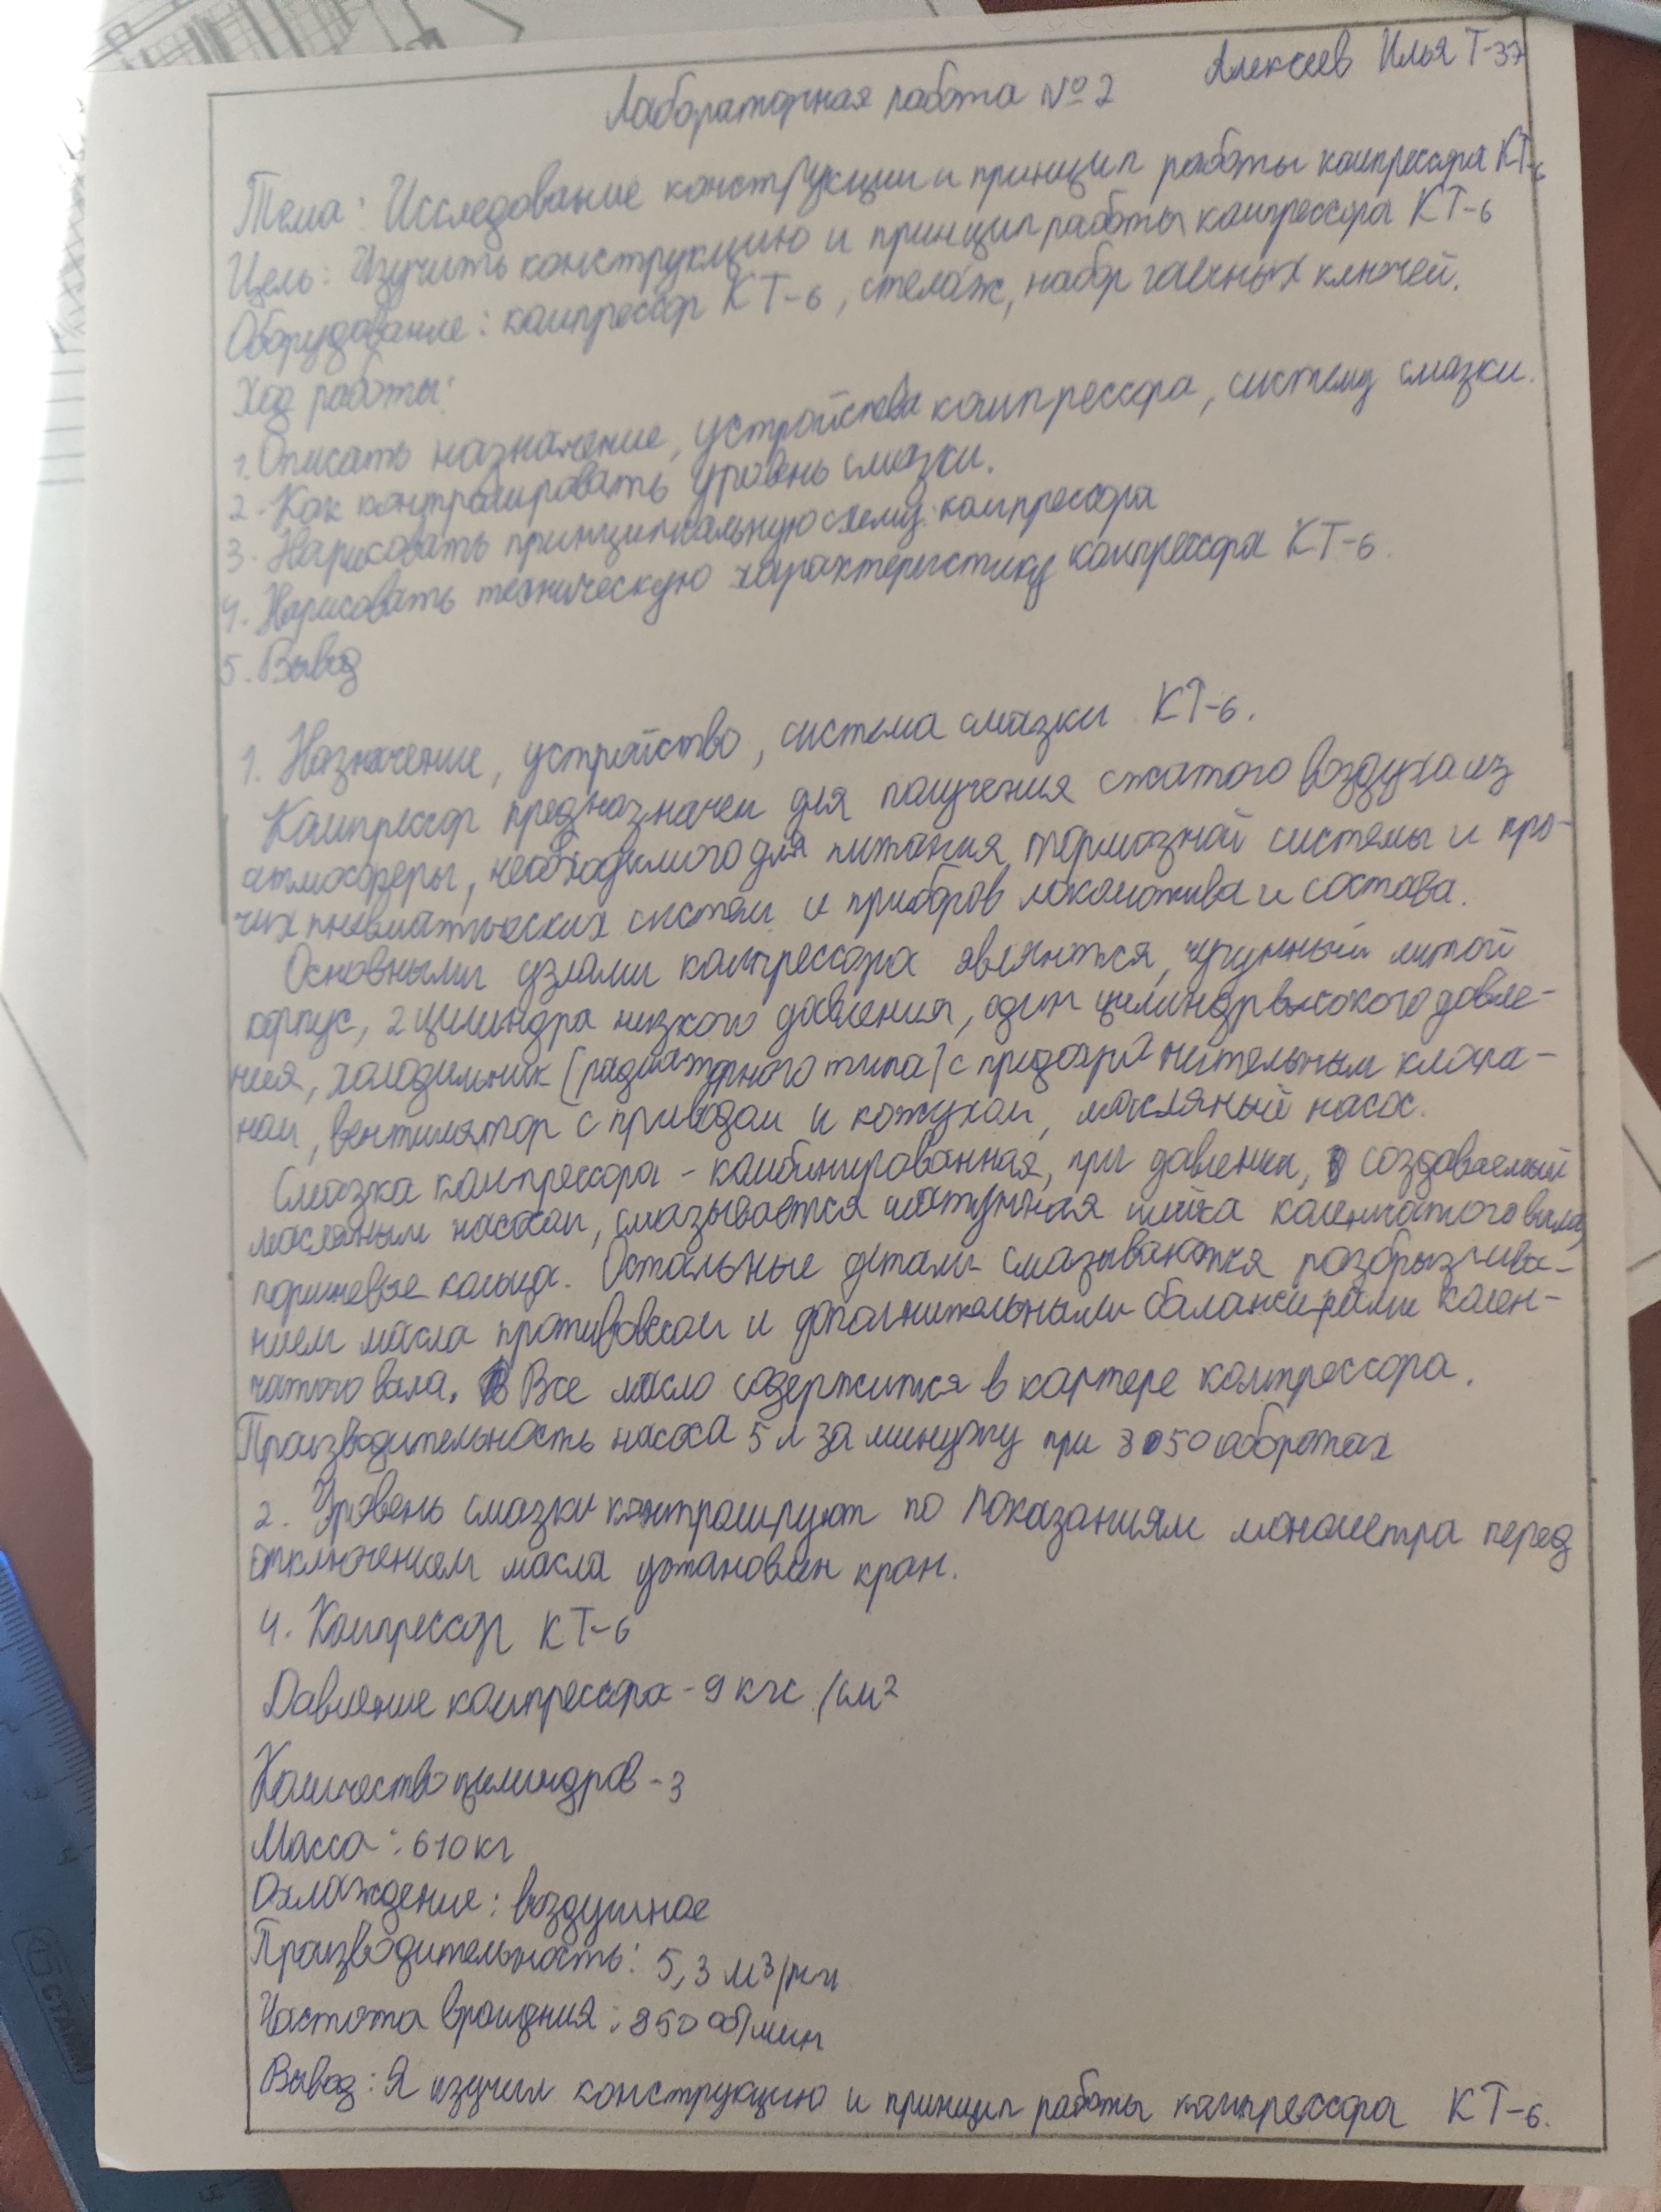 Алексеев Илья Т-37
Лабораторная работа №2
Тема: Исследование конструкции и принцип работы компрессора КТ-6
Цель: Изучить конструкцию и принцип работы компрессора КТ-6
Оборудование: компрессор КТ-6, стелаж, набор гаечных ключей.
Ход работы:
1. Описать назначение, устройства компрессора, систему смазки.
2. Как контролировать уровень смазки.
3. Нарисовать принципиальную схему компрессора
4. Нарисовать техническую характеристику компрессора КТ-6.
5. Вывод
1. Назначение, устройство, система смазки КТ-6.
Компрессор предназначен для получения сжатого воздуха из
атмосферы, необходимого для питания тормозной системы и про-
чих пневматических систем и приборов локомотива и состава.
Основными узлами компрессора являются, чугунный литой
корпус, 2 цилиндра низкого давления, один цилиндр высокого давле-
ния, холодильник (радиаторного типа) с предохранительным клапа-
ном, вентилятор с приводом и кожухом, масляный насос.
Смазка компрессора - комбинированная, при давлении, создаваемый
масляным насосом, смазывается шатунная шейка коленчатого вала,
поршневые кольца. Остальные детали смазываются разбрызгива-
нием масла противовесом и дополнительными балансирами колен-
чатого вала. Все масло содержится в картере компрессора.
Производительность насоса 5 л за минуту при 850 оборотах
2. Уровень смазки контролируют по показаниям манометра перед
отключением масла установлен кран.
4. Компрессор КТ-6
Давление компрессора - 9 кгс/см2
Количество цилиндров - 3
Масса: 610 кг
Охлаждение: воздушное
Производительность: 5,3 м3/мин
Частота вращения: 850 об/мин
Вывод: Я изучил конструкцию и принцип работы компрессора КТ-6.